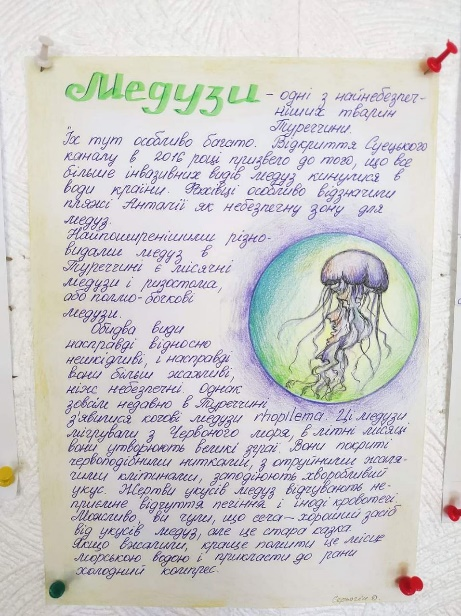 Медузи - одні з найнебезпеч-
ніших тварин
Туреччини.
Їх тут особливо багато. Відкриття Суецького
каналу в 2016 році призвело до того, що все
більше інвазивних видів медуз кинулися в
води країни. Фахівці особливо відзначили
пляжі Анталії як небезпечну зону для
медуз.
Найпоширенішими різно-
видами медуз в
Туреччині є місячні
медузи і ризостома,
або
медузи.
Обидва види
насправді відносно
нешкідливі, і насправді
вони більш жалливі,
ніж небезпечні. Однак
зовсім недавно в Туреччині
з'явилися кочові медузи rhopilema. Ці медузи
мігрували з Червоного моря, в літні місяці
вони утворюють великі зграї. Вони покриті
червоподібними нитками, з отруйними жаля-
чими клітинами, заподіюють хворобливий
укус. Жертви укусів медуз відчувають не-
приємне відчуття печіння і іноді кровотечі.
Можливо, ви чули, що сеча - хороший засіб
від укусів медуз, але це стара казка.
Якщо вжалили, краще полити це місце
морською водою і прикласти до рани
холодний компрес.